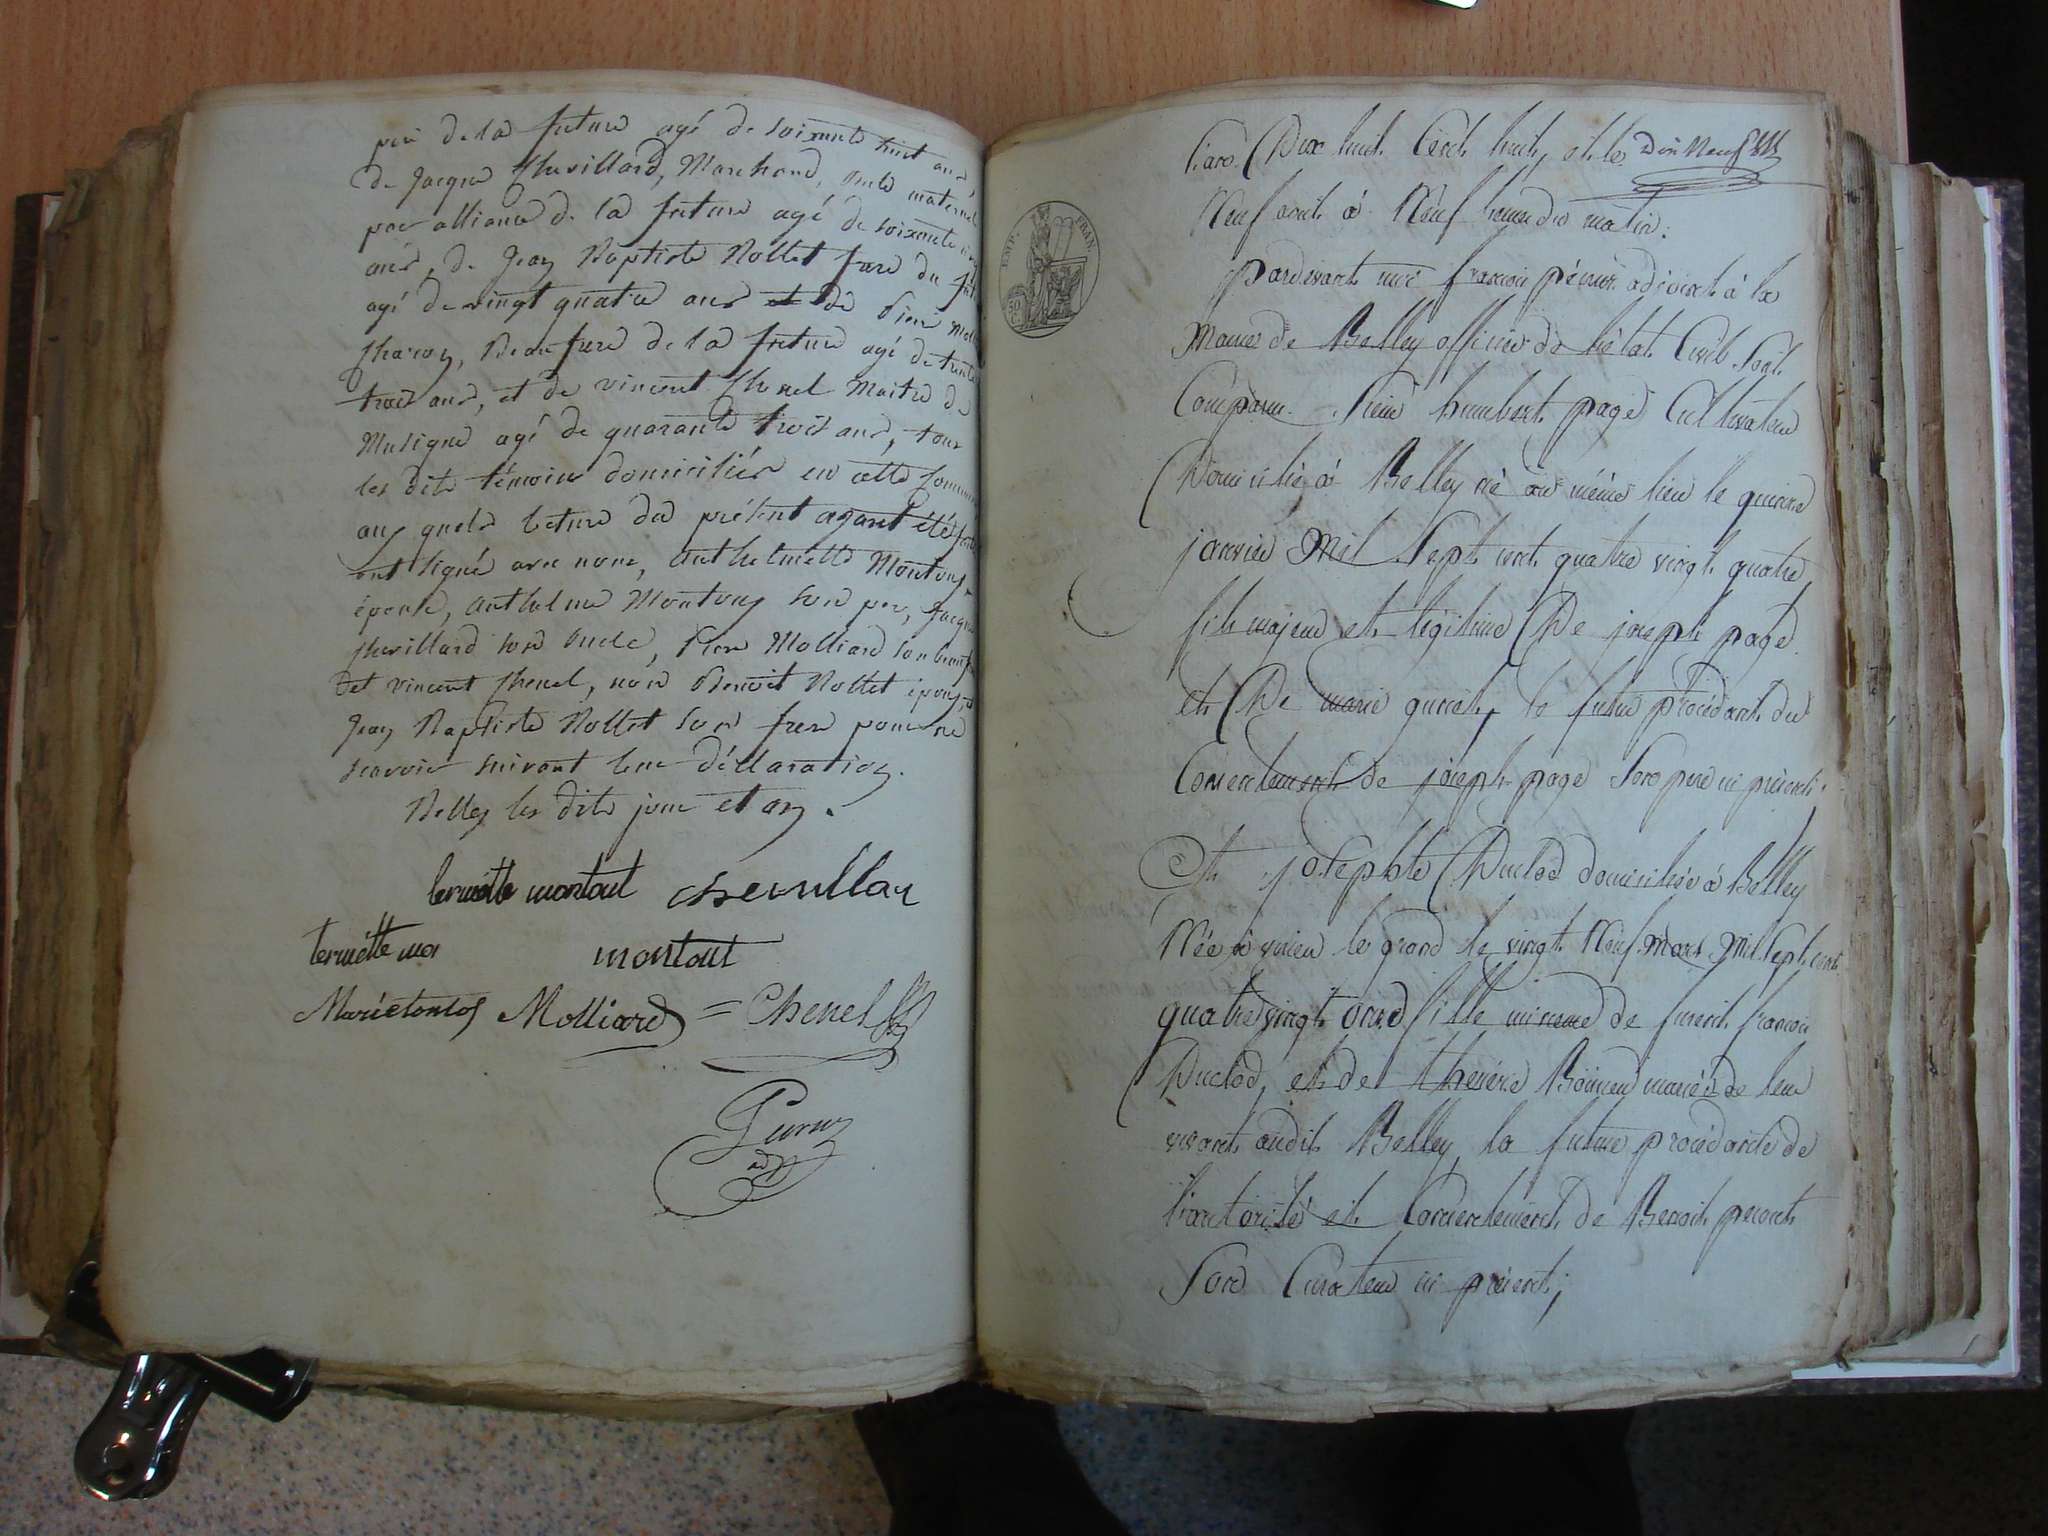 père de la future agé de soixante huit ans,
de Jacque Chevillard, Marchand, oncle maternel
par alliance de la future agé de soixante
ans, de Jean Baptiste Rollet frere du
agé de vingt quatre ans et de Pierre
Beaufrere de la future agé de trente
trois ans, et de vincent Chenel Maitre de
Musique agé de quarante trois ans, tous
les dits témoins domiciliés en cette
aux quels lecture du présent ayant été
ont signé avec nous, anthelmette Montout
épouse, anthelme Montout son pere, Jacque
Chevillard son oncle, Pierre Molliard son
et vincent Chenel, non Benoit Rollet époux,
Jean Baptiste Rollet son frere pour ne
scavoir suivant leur déclaration.
Belley les dits jour et an.
montout chevillar
termette mo
montout
Molliard = Chenel
adj
L'an Dix huit Cent huit, et le Dix Neuf
Neuf aout à Neuf heures du matin.
pardevant moi françois adjoint à la
Mairie de Belley officier de l'état Civil Soit
Comparu Sieur humbert page Cultivateur
Domicilié à Belley né au même lieu le quinze
janvier Mil Sept cent quatre vingt quatre
fils majeur et légitime De joseph page
et De marie le futur procédant du
Consentement de joseph page Son pere ici présent;
Et josephte Duclod domiciliée à Belley
Née à virieu le grand le vingt Neuf mars Mil Sept cent
quatre vingt onze fille mineure de furent françois
Duclod, et de thérèse mariés de leur
vivant audit Belley, la future procédante de
l'autorité et Consentement de Benoit
Son Curateur ici présent;
EMP. FRAN.
50
C.